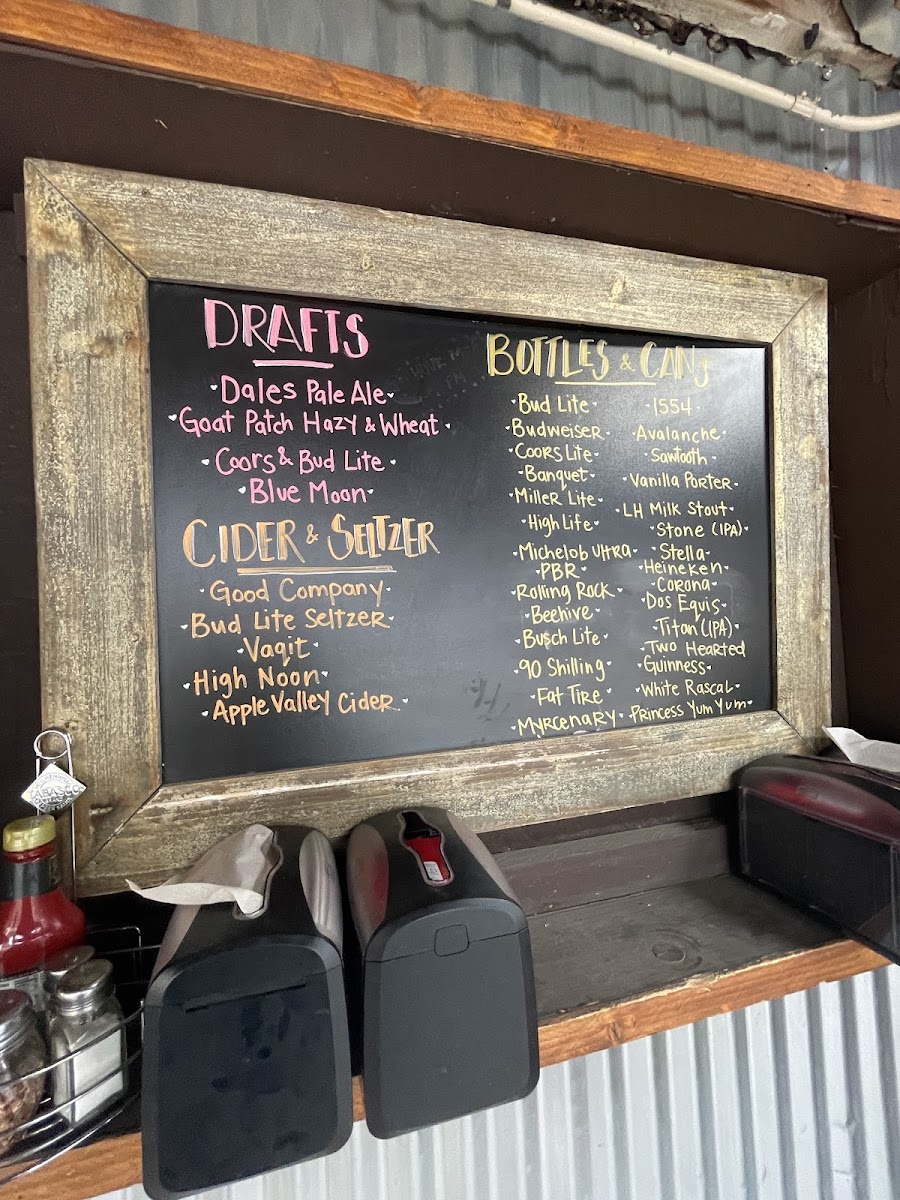 DRAFTS
Dales Pale Ale
Goat Patch Hazy & Wheat
Coors & Bud Lite
Blue Moon
CIDER & SELTZER
Good Company
Bud Lite Seltzer
Vaqit
High Noon
Apple Valley Cider
BOTTLES & CANS
Bud Lite
Budweiser
Coors Lite
Banquet
Miller Lite
High Life
Michelob Ultra
PBR
Rolling Rock
Beehive
Busch Lite
90 Shilling
Fat Tire
Myrcenary
1554
Avalanche
Sawtooth
Vanilla Porter
LH Milk Stout
Stone (IPA)
Stella
Heineken
Corona
Dos Equis
Titan (IPA)
Two Hearted
Guinness
White Rascal
Princess Yum Yum
TABASCO